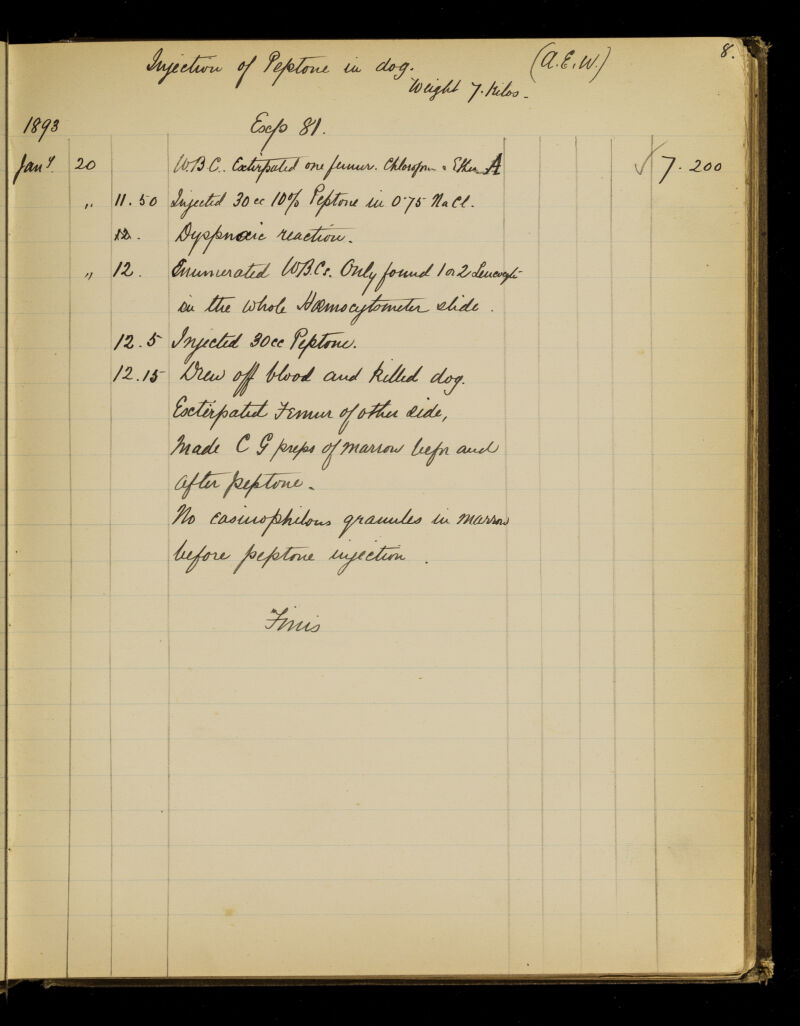 8.
Injection of Peptone in dog. (A.E.W.)
Weight 7. Kilos.
1893 Exp 81.
Jany. 20 W.B.C. Extirpated one femur. Chloroform & Ether A ✓ 7.200
" 11.50 Injected 30 cc 10% Peptone in 0.75 NaCl.
12. Dyspnoeic reaction.
" 12. Enumerated W.B.Cs. Only found 1 or 2 Leucocyte
in the whole Hæmocytometer slide.
12.5 Injected 30cc Peptone.
12.15 Drew off blood and killed dog.
Extirpated Femur of other side,
Made C G preps of marrow befor and
after peptone.
No eosinophilous granules in marrow
before peptone injection.
Finis